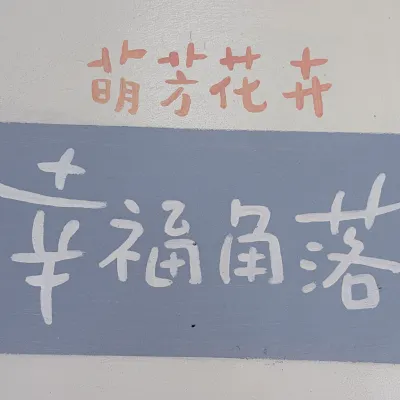 萌芳花卉
幸福角落